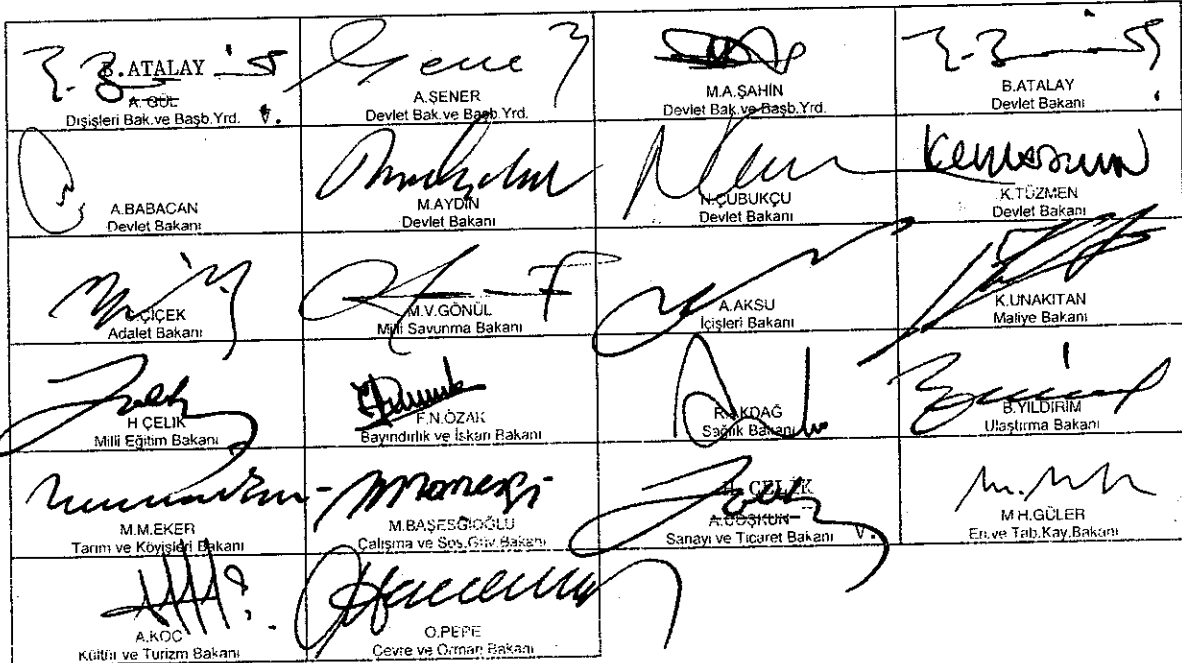 B.ATALAY
A. GÜL
Dışişleri Bak.ve Başb.Yrd. V.
A.ŞENER
Devlet Bak.ve Başb.Yrd.
M.A.ŞAHİN
Devlet Bak.ve Başb.Yrd.
B.ATALAY
Devlet Bakanı
A.BABACAN
Devlet Bakanı
M.AYDIN
Devlet Bakanı
N.ÇUBUKÇU
Devlet Bakanı
K.TÜZMEN
Devlet Bakanı
C.ÇİÇEK
Adalet Bakanı
M.V.GÖNÜL
Milli Savunma Bakanı
A.AKSU
İçişleri Bakanı
K.UNAKITAN
Maliye Bakanı
H.ÇELİK
Milli Eğitim Bakanı
F.N.ÖZAK
Bayındırlık ve İskan Bakanı
R.AKDAĞ
Sağlık Bakanı
B.YILDIRIM
Ulaştırma Bakanı
M.M.EKER
Tarım ve Köyişleri Bakanı
M.BAŞESGİOĞLU
Çalışma ve Sos.Güv.Bakanı
H. ÇELİK
A.COŞKUN
Sanayi ve Ticaret Bakanı V.
M.H.GÜLER
En.ve Tab.Kay.Bakanı
A.KOÇ
Kültür ve Turizm Bakanı
O.PEPE
Çevre ve Orman Bakanı